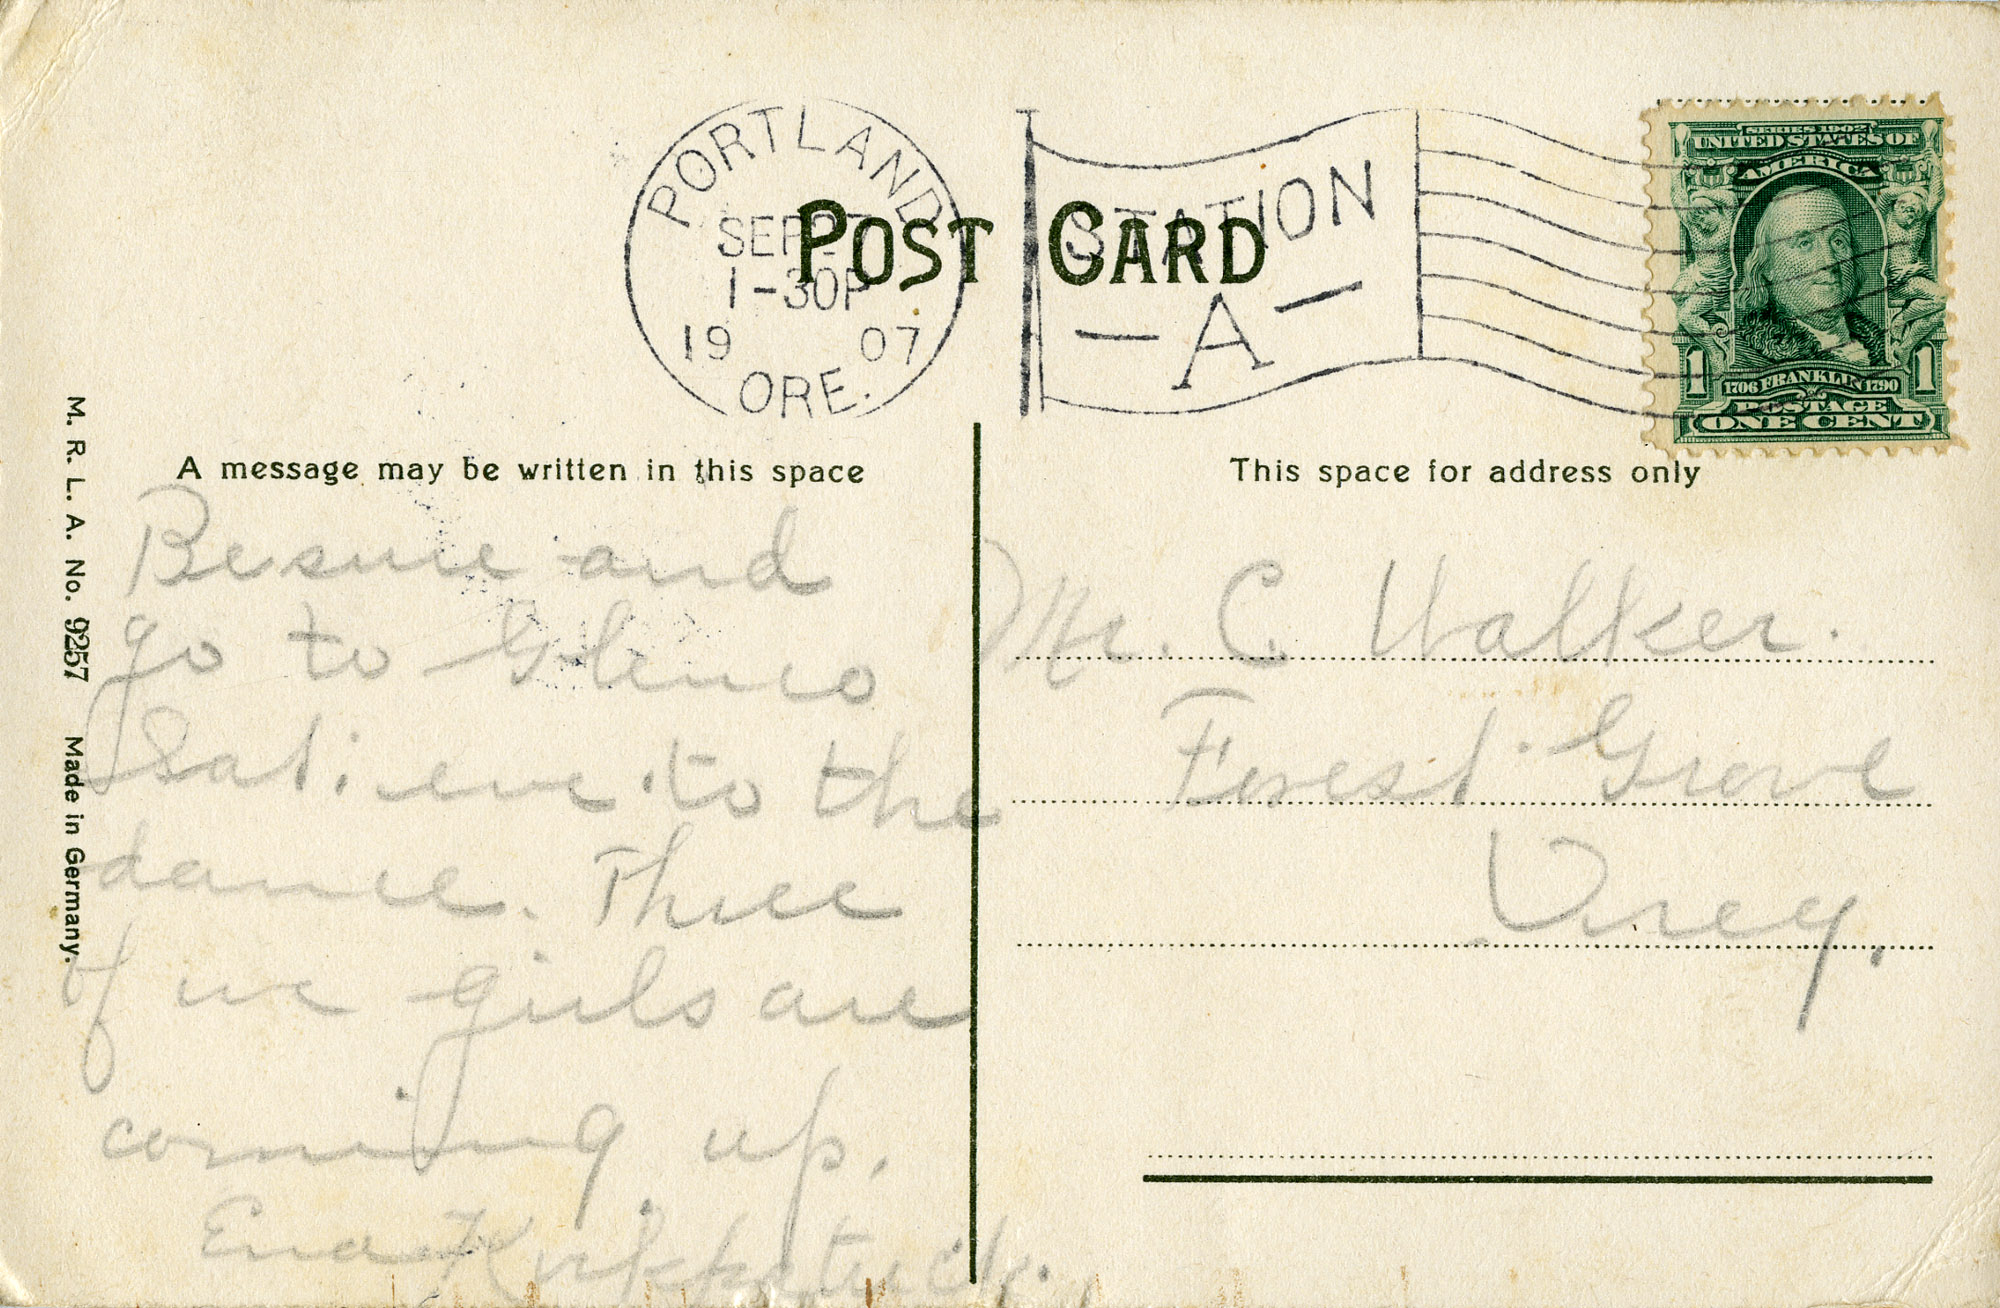 POST CARD
PORTLAND
SEP
1-30P
19 07
ORE.
STATION
-A-
SERIES 1902
UNITED STATES OF
AMERICA
1706 FRANKLIN 1790
1 1
POSTAGE
ONE CENT
M. R. L. A. No. 9257 Made in Germany.
A message may be written in this space
Be sure and
go to Glenco
Sat. eve. to the
dance. Three
of we girls are
coming up.
Ena Kirkpatrick.
This space for address only
Mr. C. Walker.
Forest Grove
Oreg.